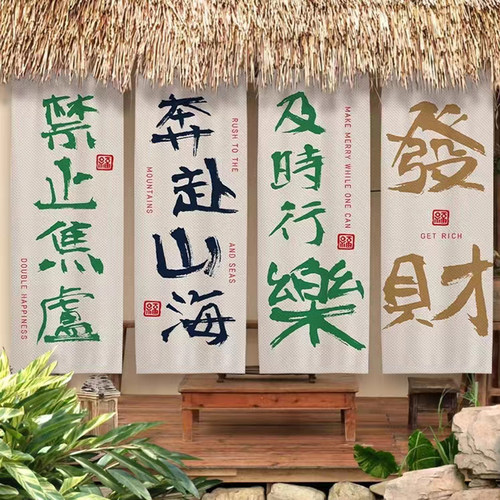 禁止焦盧
DOUBLE HAPPINESS
奔赴山海
RUSH TO THE
MOUNTAINS
AND SEAS
及時行樂
MAKE MERRY WHILE ONE CAN
發財
GET RICH